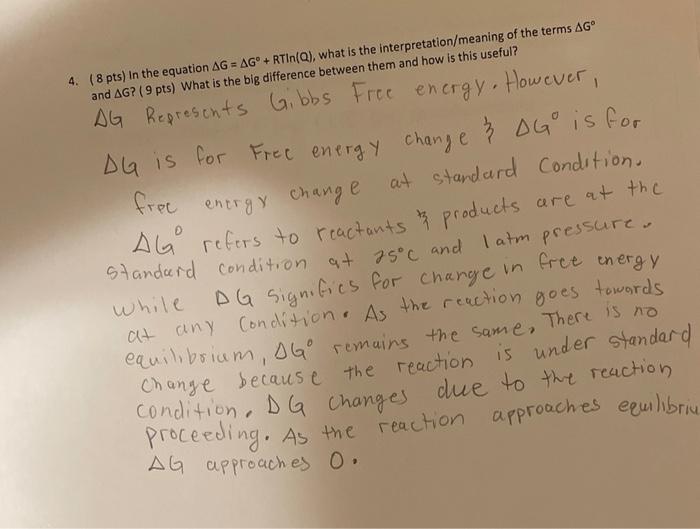 4. ( 8 pts) In the equation ΔG = ΔG° + RTln(Q), what is the interpretation/meaning of the terms ΔG°
and ΔG? ( 9 pts) What is the big difference between them and how is this useful?
ΔG Represents Gibbs Free energy. However,
ΔG is for Free energy change & ΔG° is for
free energy change at standard Condition.
ΔG° refers to reactants & products are at the
standard condition at 25°C and 1 atm pressure.
while ΔG signifies for change in free energy
at any Condition. As the reaction goes towards
equilibrium, ΔG° remains the same. There is no
change because the reaction is under standard
condition. ΔG changes due to the reaction
proceeding. As the reaction approaches equilibriu
ΔG approaches 0.